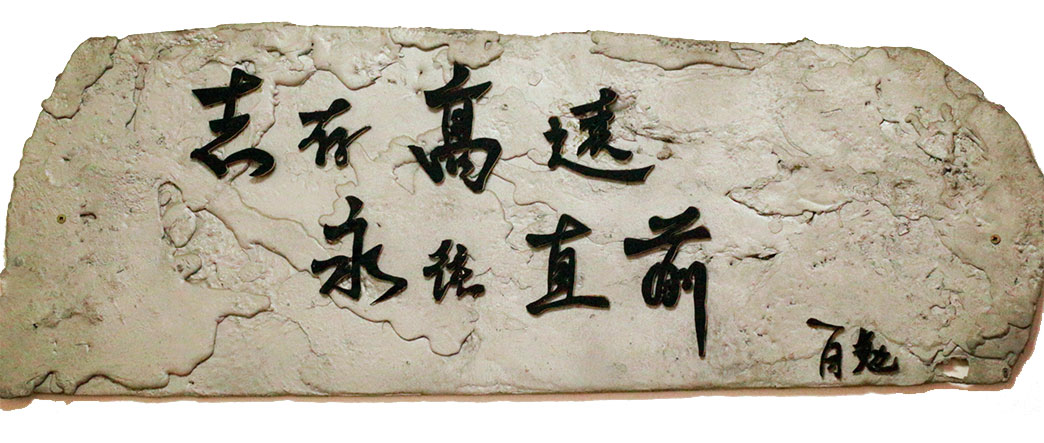 志存高遠
永往直前
自勉